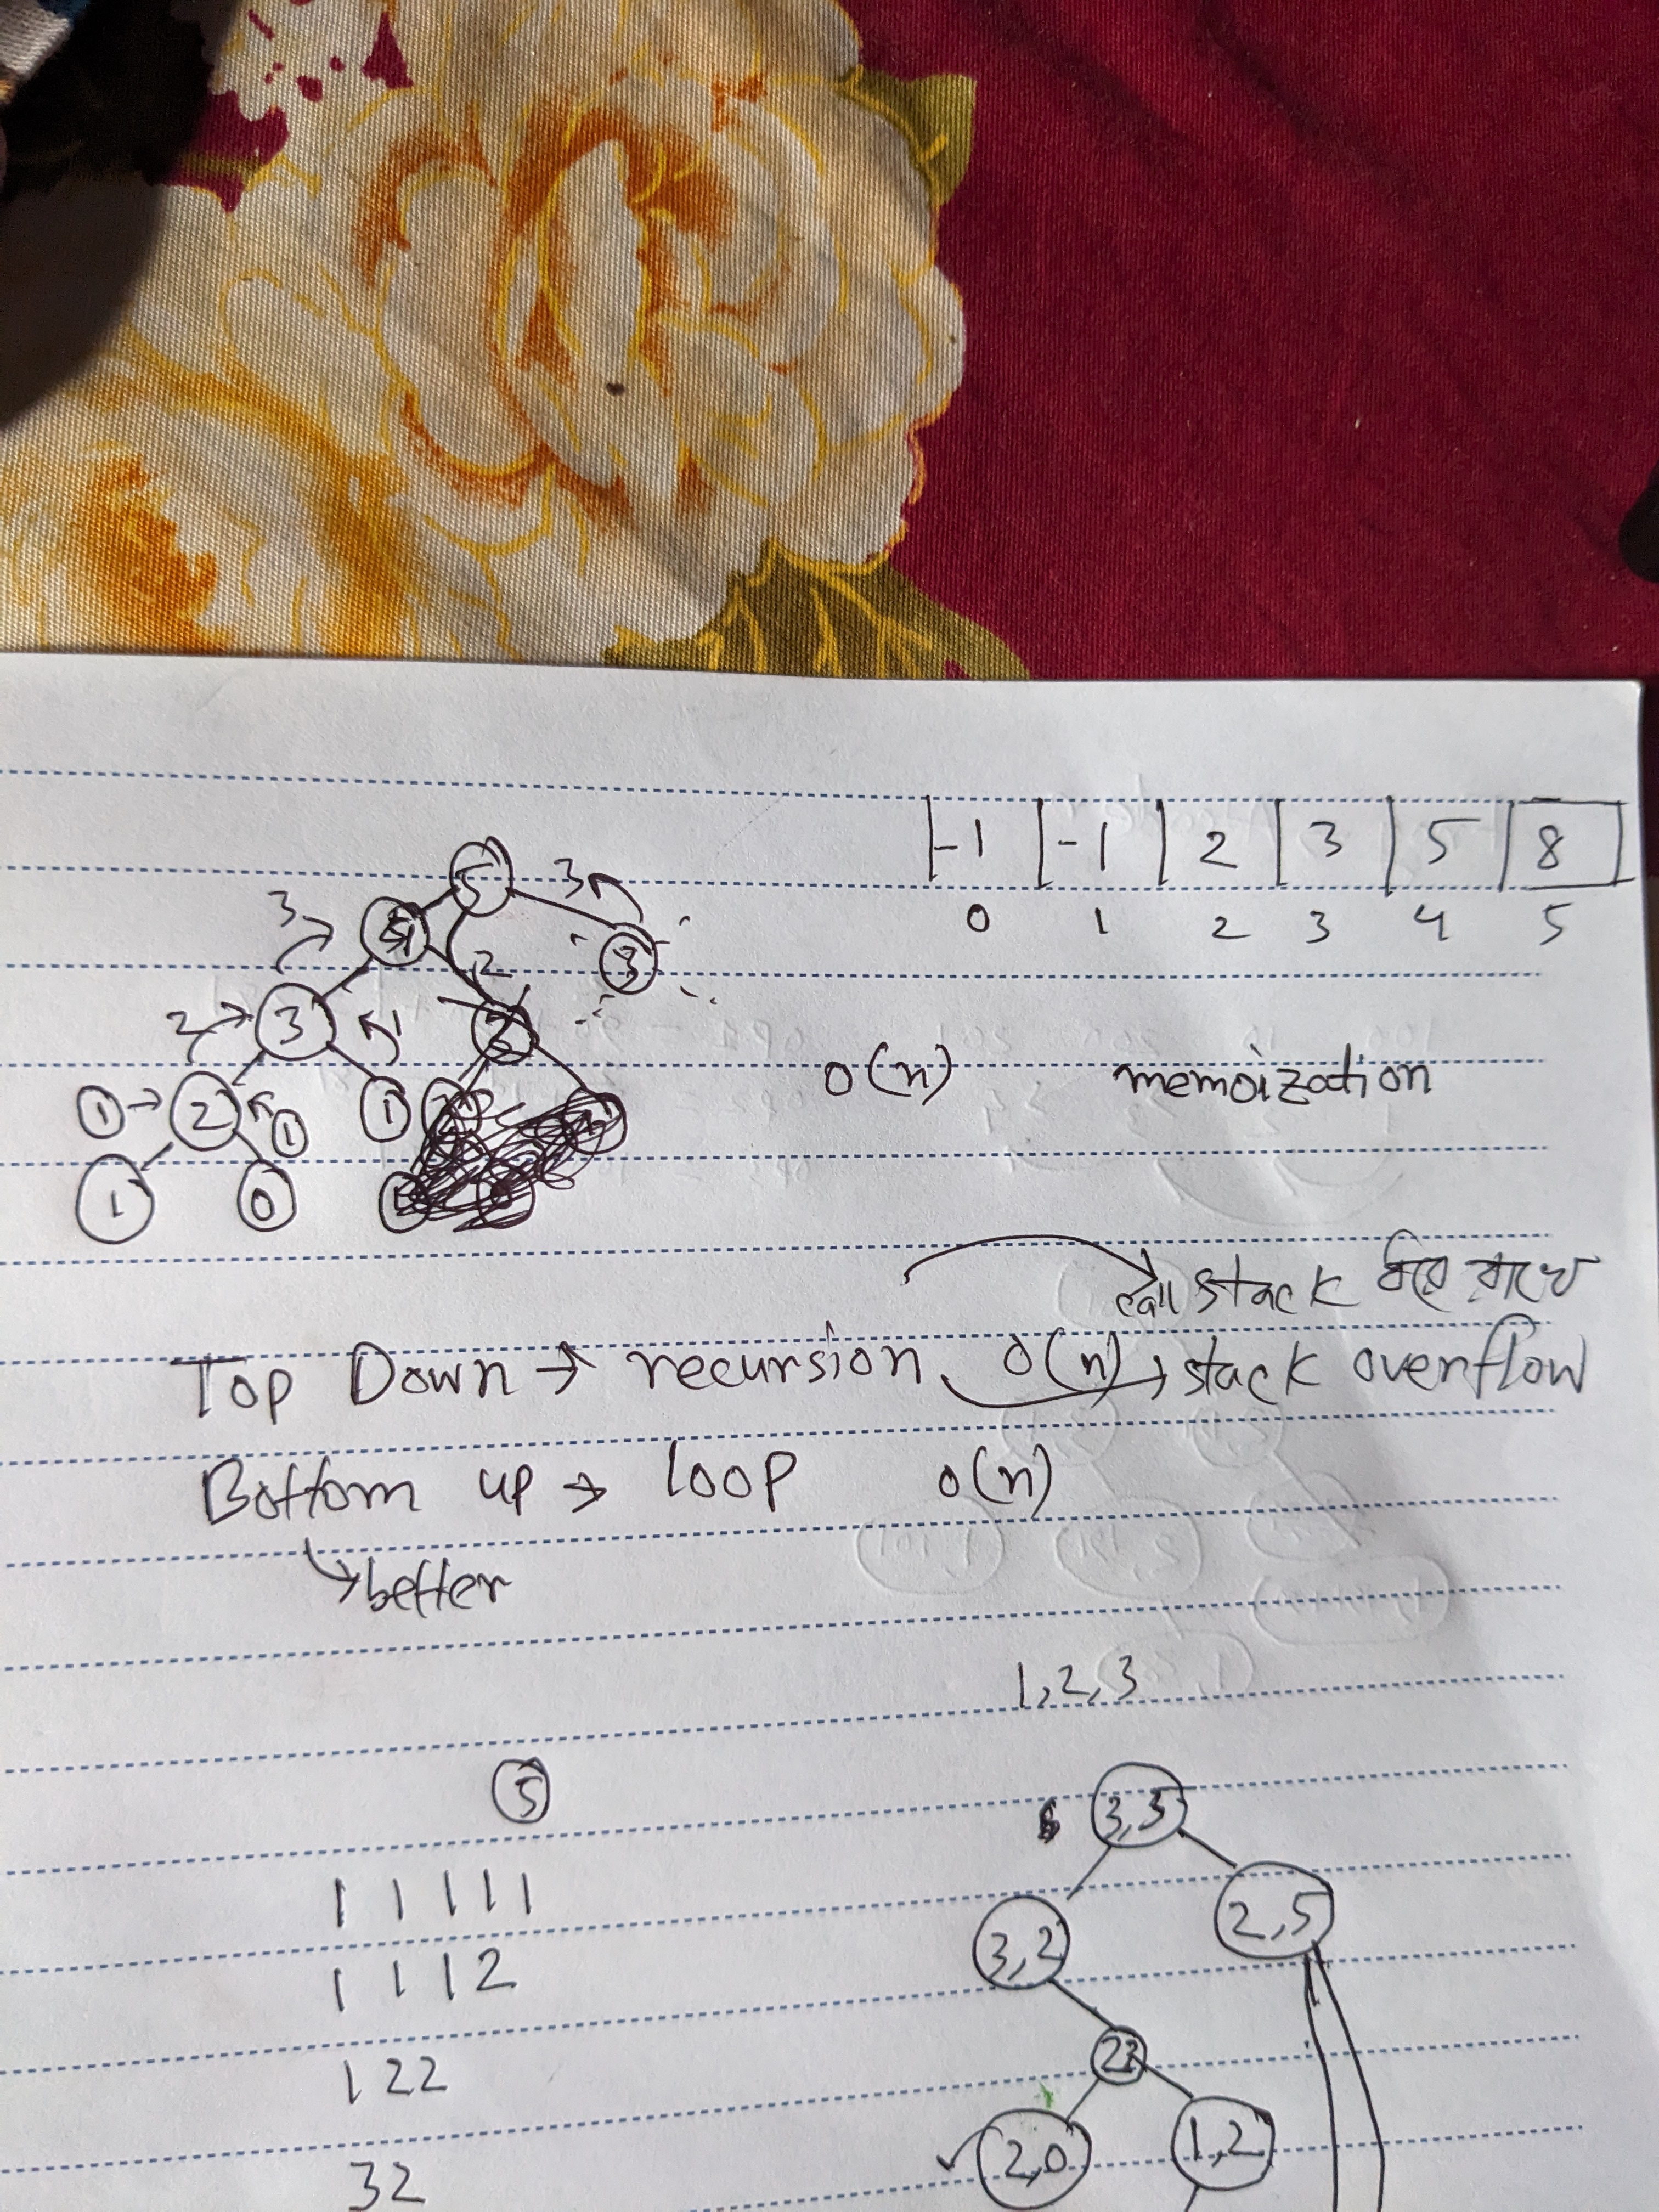 -1 -1 2 3 5 8
0 1 2 3 4 5
5
3 3
4 3
2
2 3 1 2
1 2 1 1
1 0
O(n) memoization
call stack করে রাখে
Top Down → recursion O(n) → stack overflow
Bottom up → loop O(n)
better
1,2,3
5
3,5
1 1 1 1 1
3,2 2,5
1 1 1 2
22
1 2 2
2,0 1,2
3 2